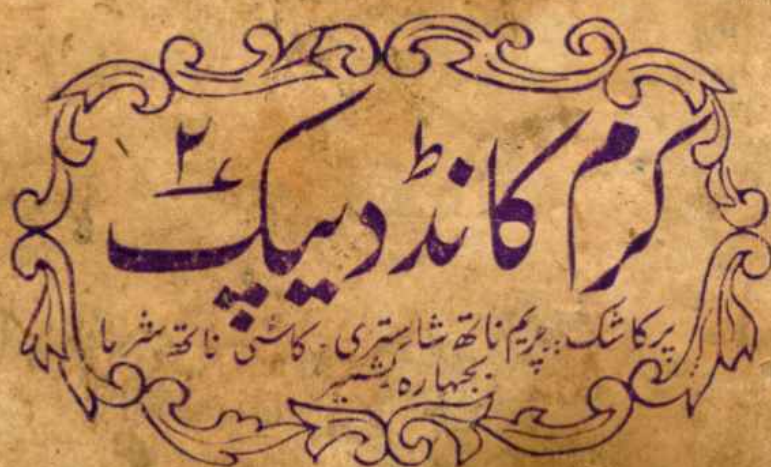 کرم کانڈ دیپک ۲
پرکاشک :: پریم ناتھ شاستری . کاشی ناتھ شرما
بجبہارہ کشمیر